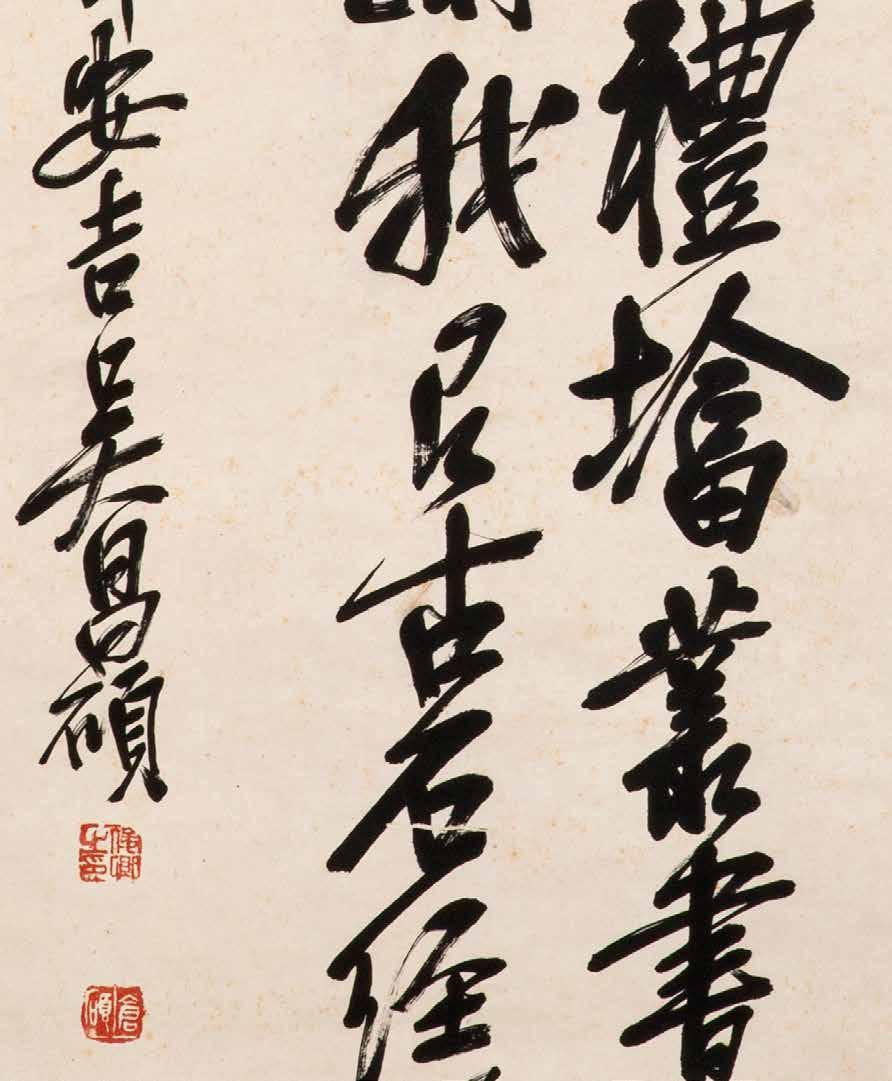 禮墖叢書
我㠯古石經
安吉吳昌碩
俊卿之印
倉碩